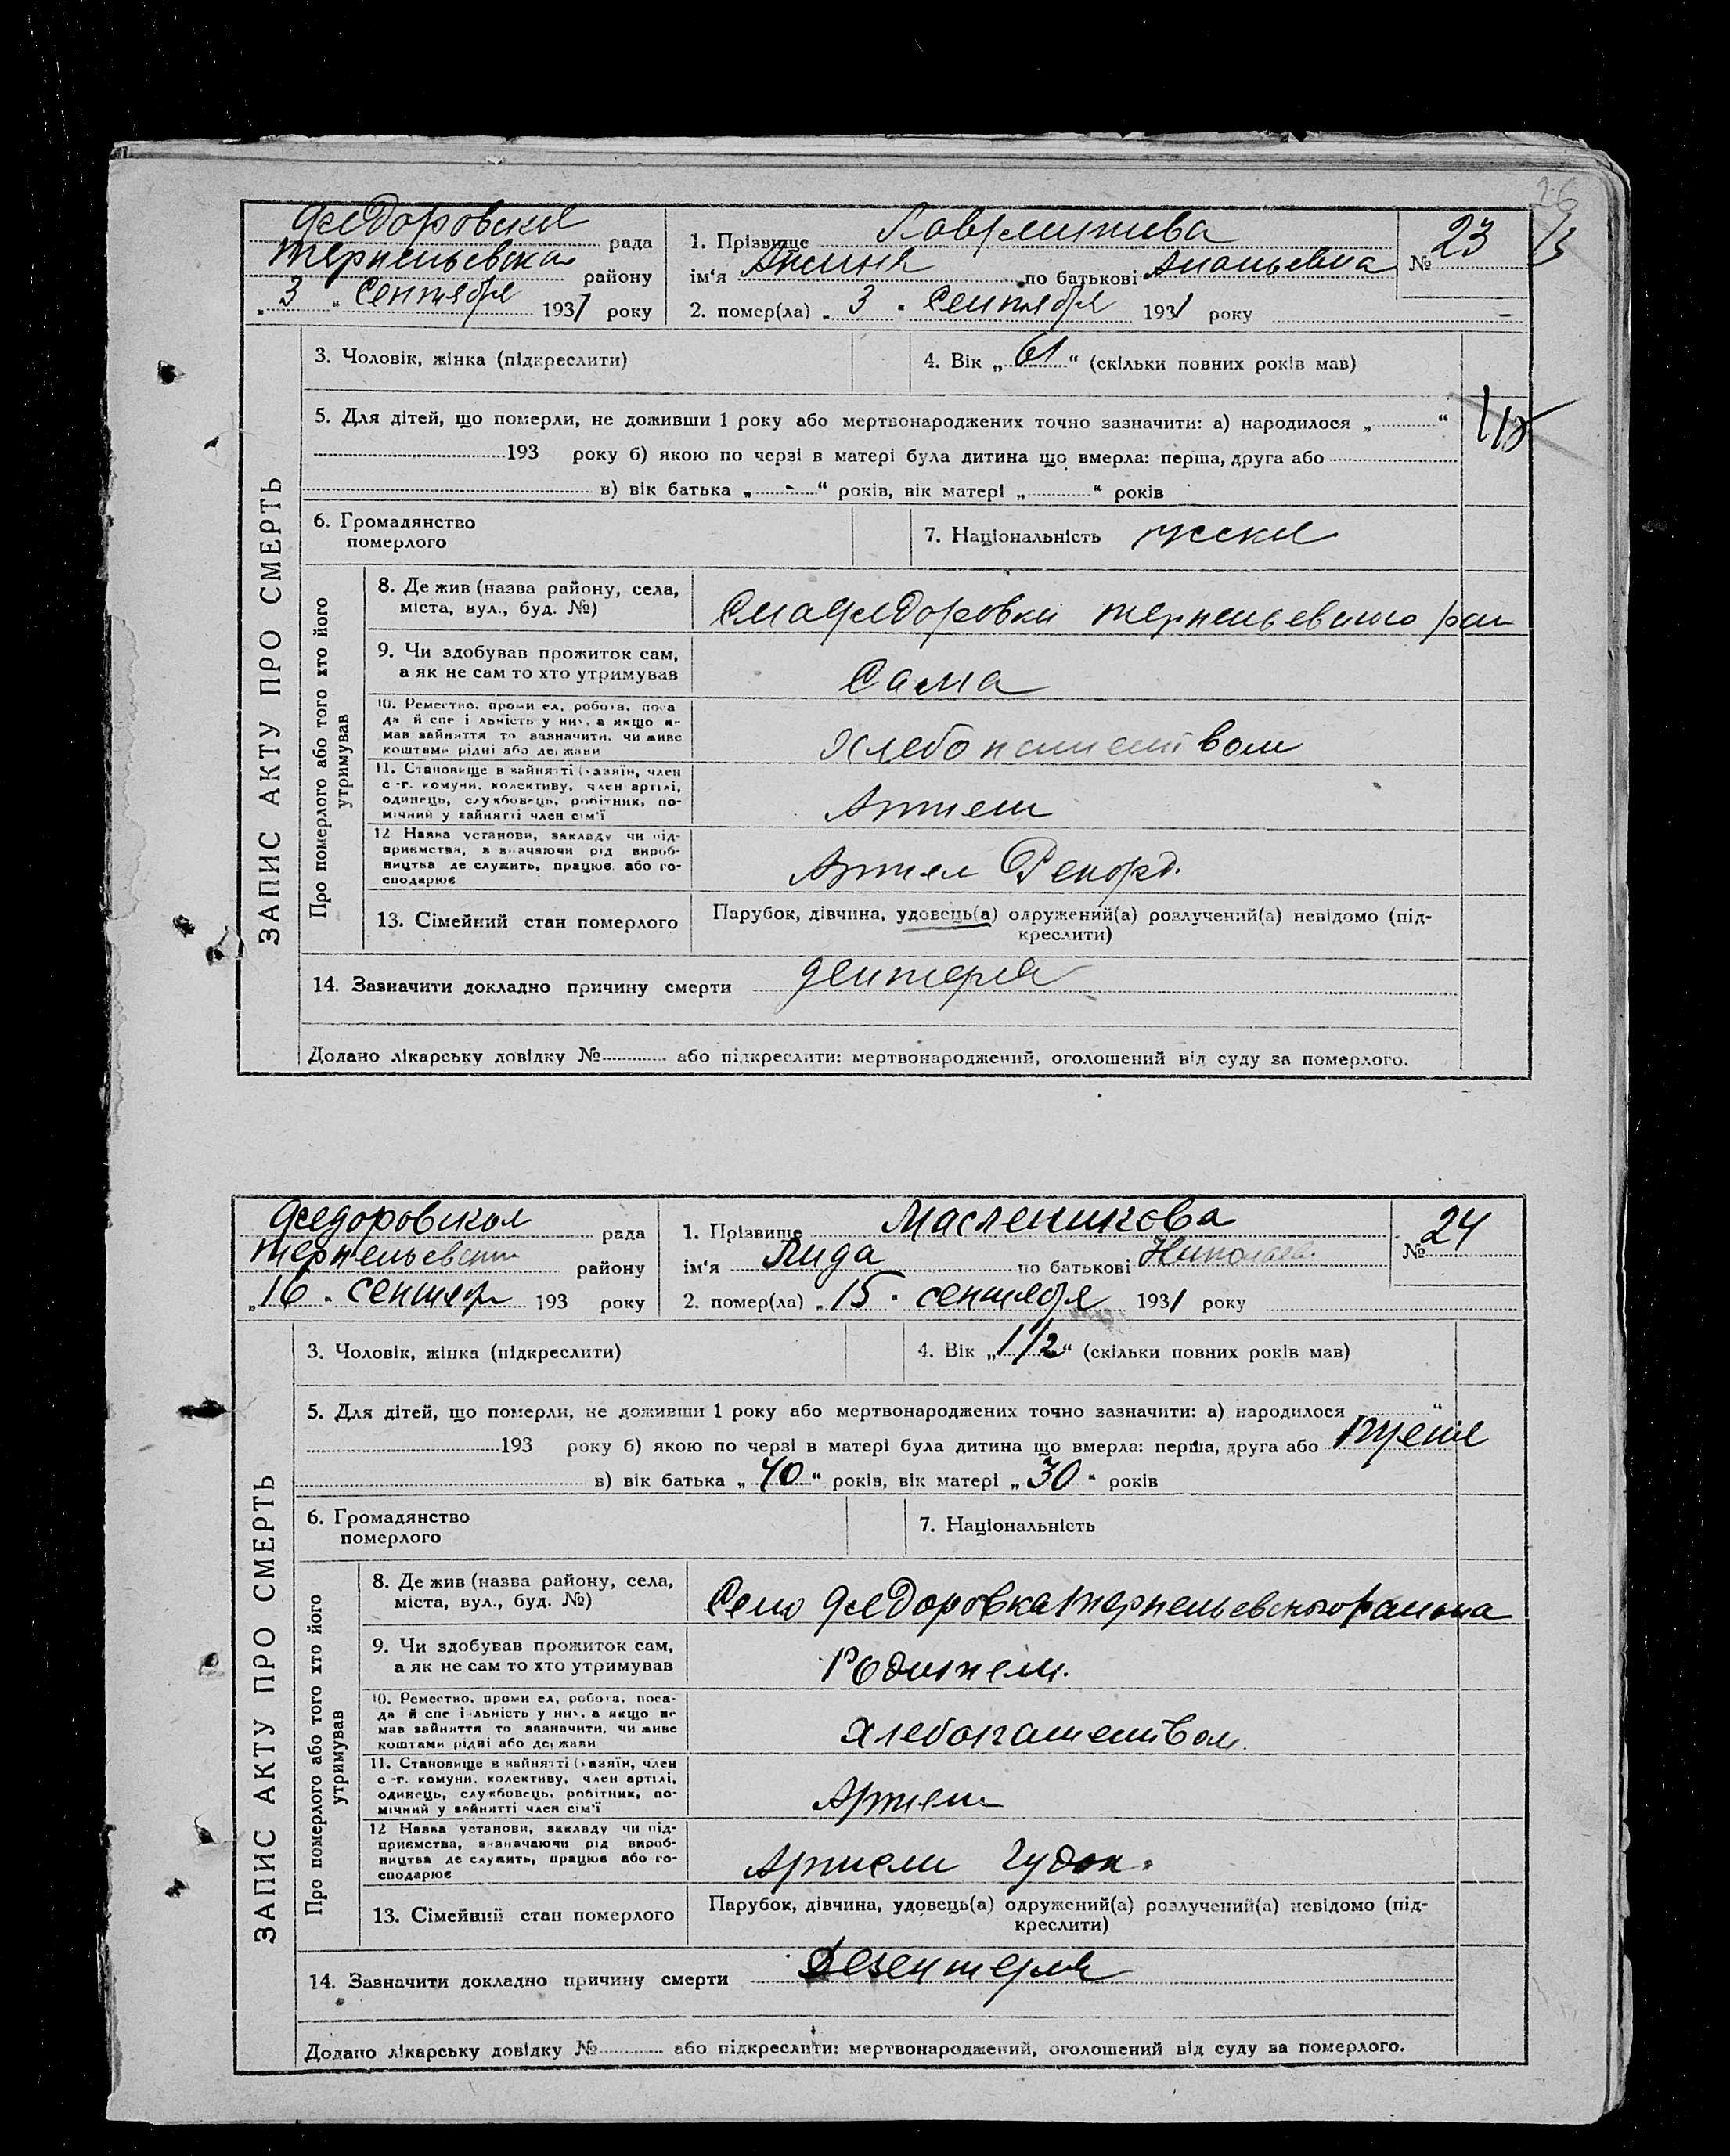 26
Федоровская рада
Терпеньевска району
„ 3 “ Сентября 1931 року
1. Прізвище
ім‘я по батькові Ананьевна
2. помер(ла) „ 3 “ Сентября 1931 року
№ 23
ЗАПИС АКТУ ПРО СМЕРТЬ
3. Чоловік, жінка (підкреслити)
4. Вік „ 61 “ (скільки повних років мав)
5. Для дітей, що померли, не доживши 1 року або мертвонароджених точно зазначити: а) народилося „ “
193 року б) якою по черзі в матері була дитина що вмерла: перша, друга або
в) вік батька „ - “ років, вік матері „ “ років
6. Громадянство
померлого
7. Національність руска
Про померлого або того хто його
утримував
8. Де жив (назва району, села,
міста, вул., буд. №)
Терпеньевского
9. Чи здобував прожиток сам,
а як не сам то хто утримував
Сама
10. Ремество, проми ел, робота, поса
да й спе і льність у них, а якщо не
мав зайняття то зазначити, чи живе
коштами рідні або держави
Хлебопашеством
11. Становище в зайнятті (хазяїн, член
с-г. комуни, колективу, член артілі,
одинець, службовець, робітник, по-
мічний у зайнятті член сім'ї
Артели
12 Назва установи, закладу чи під-
приємства, зазначаючи рід вироб-
ництва де служить, працює або го-
сподарює
Артел Рекорд.
13. Сімейний стан померлого
Парубок, дівчина, удовець(а) одружений(а) розлучений(а) невідомо (під-
креслити)
14. Зазначити докладно причину смерти
Додано лікарську довідку № або підкреслити: мертвонароджений, оголошений від суду за померлого.
Федоровская рада
Терпеньевски району
„ 16 “ сентябр 193 року
1. Прізвище Масленикова
ім‘я Лида по батькові Николаев.
2. помер(ла) „ 15 “ сентября 1931 року
№ 24
ЗАПИС АКТУ ПРО СМЕРТЬ
3. Чоловік, жінка (підкреслити)
4. Вік „ 1 1/2 “ (скільки повних років мав)
5. Для дітей, що померли, не доживши 1 року або мертвонароджених точно зазначити: а) народилося “
193 року б) якою по черзі в матері була дитина що вмерла: перша, друга або
в) вік батька „ 40 “ років, вік матері „ 30 “ років
6. Громадянство
померлого
7. Національність
Про померлого або того хто його
утримував
8. Де жив (назва району, села,
міста, вул., буд. №)
Село Федоровка Терпеньевского района
9. Чи здобував прожиток сам,
а як не сам то хто утримував
Родители.
10. Ремество, проми ел, робота, поса-
да й спе і альність у них, а якщо не
мав зайняття то зазначити, чи живе
коштами рідні або держави
Хлебопашеством.
11. Становище в зайнятті (хазяїн, член
с-г. комуни, колективу, член артілі,
одинець, службовець, робітник, по-
мічний у зайнятті член сім'ї
Артели
12 Назва установи, закладу чи під-
приємства, зазначаючи рід вироб-
ництва де служить, працює або го-
сподарює
Артели Гудок.
13. Сімейний стан померлого
Парубок, дівчина, удовець(а) одружений(а) розлучений(а) невідомо (під-
креслити)
14. Зазначити докладно причину смерти Дезентерия
Додано лікарську довідку № або підкреслити: мертвонароджений, оголошений від суду за померлого.